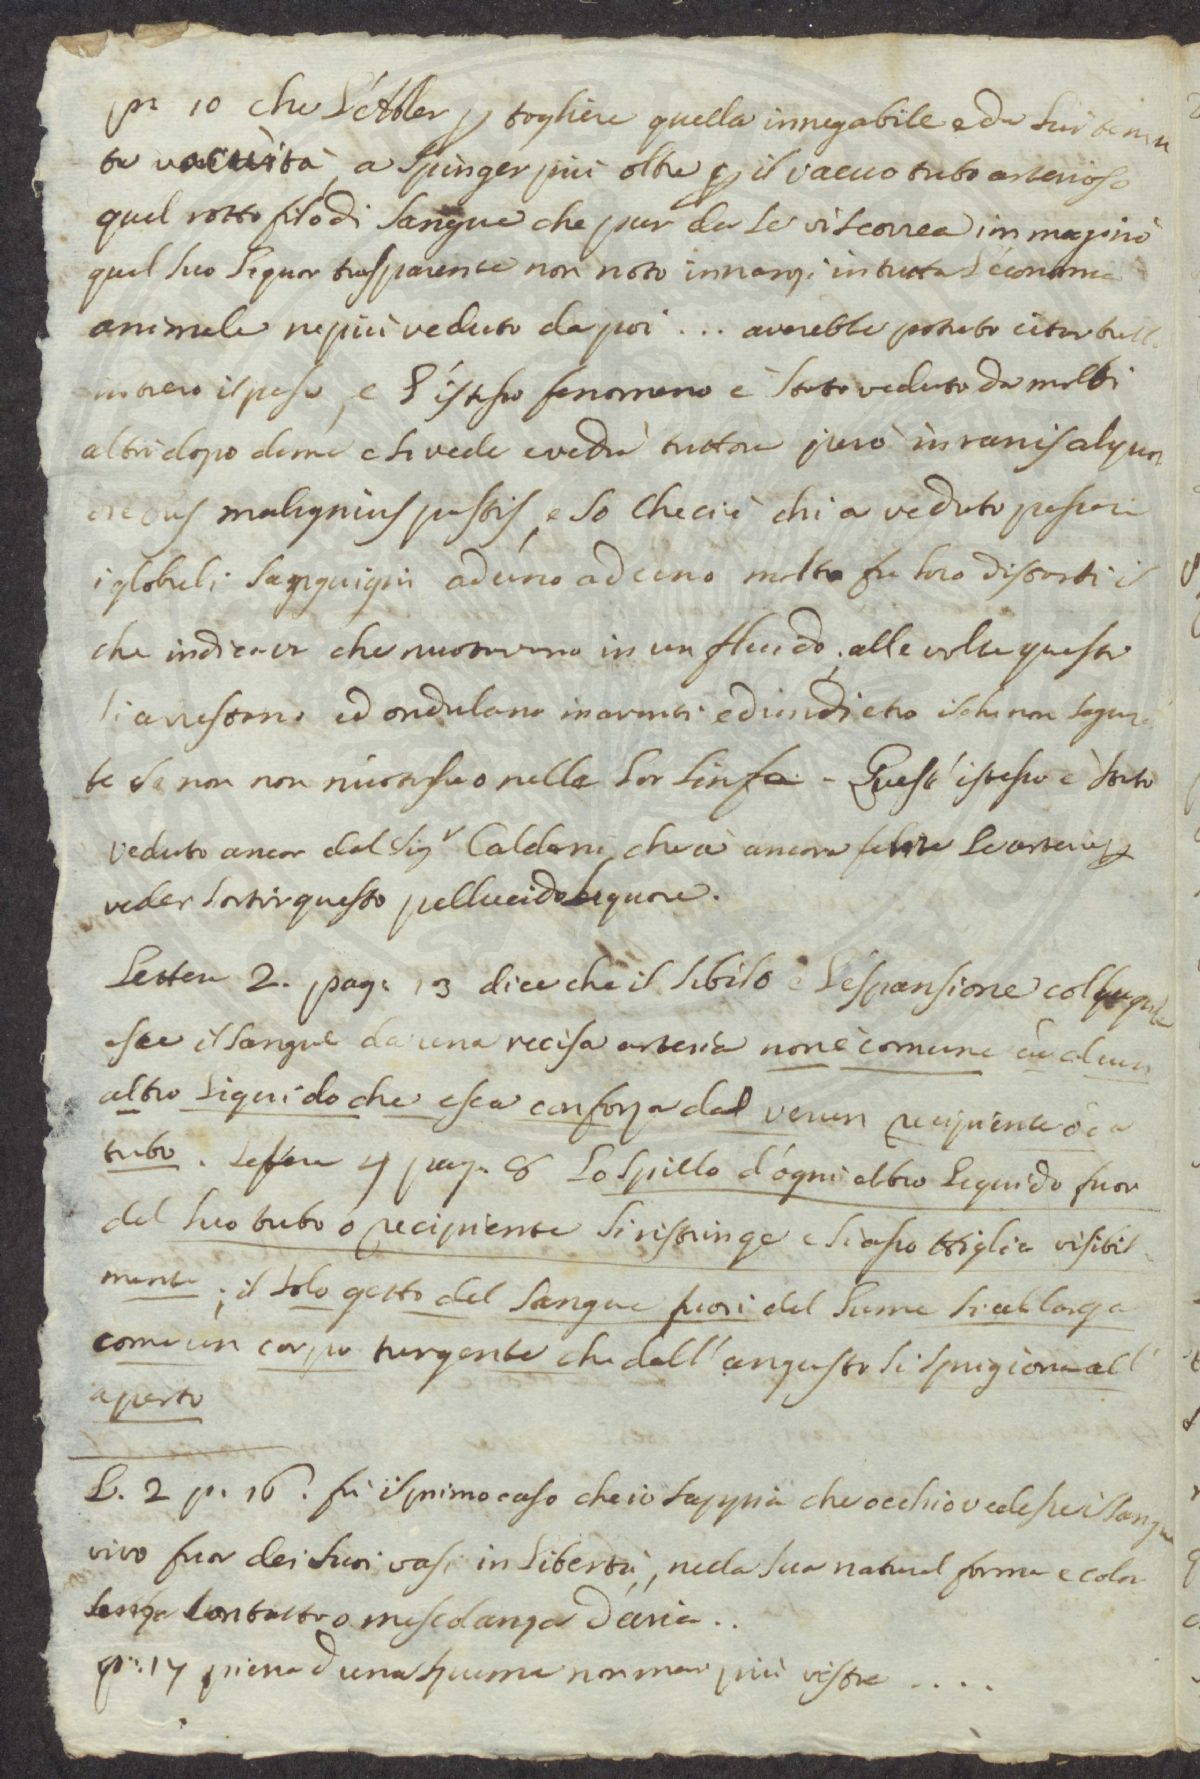 p: 10 che L'Atller p toghiere quella innegabile e da lui
ta vacuità, a spinger più oltre p il vacuo tubo arterioso
quel rotto filo di sangue che pur da se vi scorrea immaginò
quel suo liquor trasparente non noto innanzi in tutta l'economia
animale ne più veduto da poi ... averebbe potuto citar
intiero il passo, e l'istesso fenomeno è stato veduto da molti
altri dopo di me e si vede e vedrà tuttora però in ranis
malignius pastis, e so che ci è chi a veduto passare
i globuli sanguigni ad uno ad uno molto fra loro distanti il
che indicava che nuotavano in un fluido; alle volte questi
si arrestano ed ondulano in avanti ed in dietro il che non
te se non non nuotassero nella lor linfa - Quest'istesso è stato
veduto ancor dal Sigr Caldani, che à ancora le arterie p
veder sortir questo pellucido liquore.
Lettera 2. pag: 13 dice che il sibilo e l'espansione col quale
esce il sangue da una recisa arteria non è comune ad alcun
altro liquido che esca con forza dal recipiente o da
tubo. Lettera 4 pag. 8 Lo spillo d'ogni altro liquido fuor
del suo tubo o recipiente si ristringe e si assottiglia visibil
mente; il solo getto del sangue fuori del lume si allarga
come un corpo turgente che dall'angusto si sprigiona all'
aperto
L. 2 p. 16. fù il primo caso che io sappia che occhio vedesse il sangue
vivo fuor dei suoi vasi in libertà, nella sua natural forma e color
senza contatto o mescolanza d'aria..
p: 17 piena d'una spuma non mai più vista ....